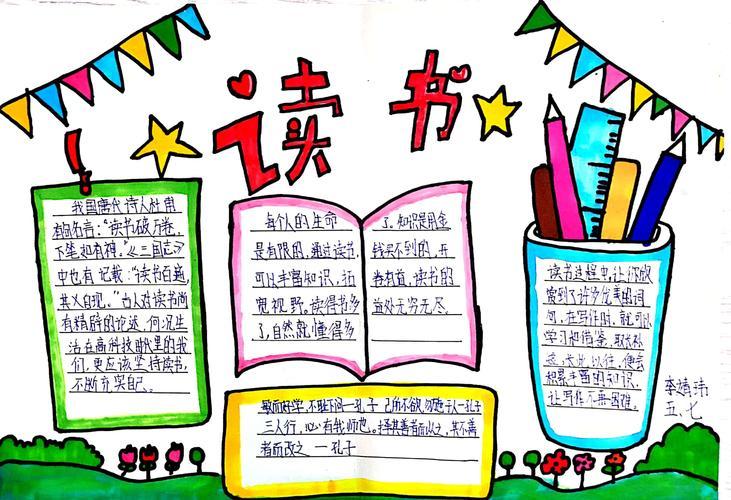 读书
我国唐代诗人杜甫
有句名言：“读书破万卷，
下笔如有神。”《三国志》
中也有记载：“读书百遍，
其义自现。”古人对读书尚
有精辟的论述，何况生
活在高科技时代里的我
们，更应该坚持读书，
不断充实自己。
每个人的生命
是有限的，通过读书，
可以丰富知识，拓
宽视野。读得书多
了，自然就懂得多
了。知识是用金
钱买不到的，开
卷有益，读书的
益处无穷无尽。
读书过程中，让你欣
赏到了许多优美的词
句，在写作时，就可以
学习和借鉴，取长补
短，长此以往，便会
积累丰富的知识，
让写作不再困难。
敏而好学，不耻下问—孔子 己所不欲，勿施于人—孔子
三人行，必有我师也。择其善者而从之，其不善
者而改之 —孔子
五、七